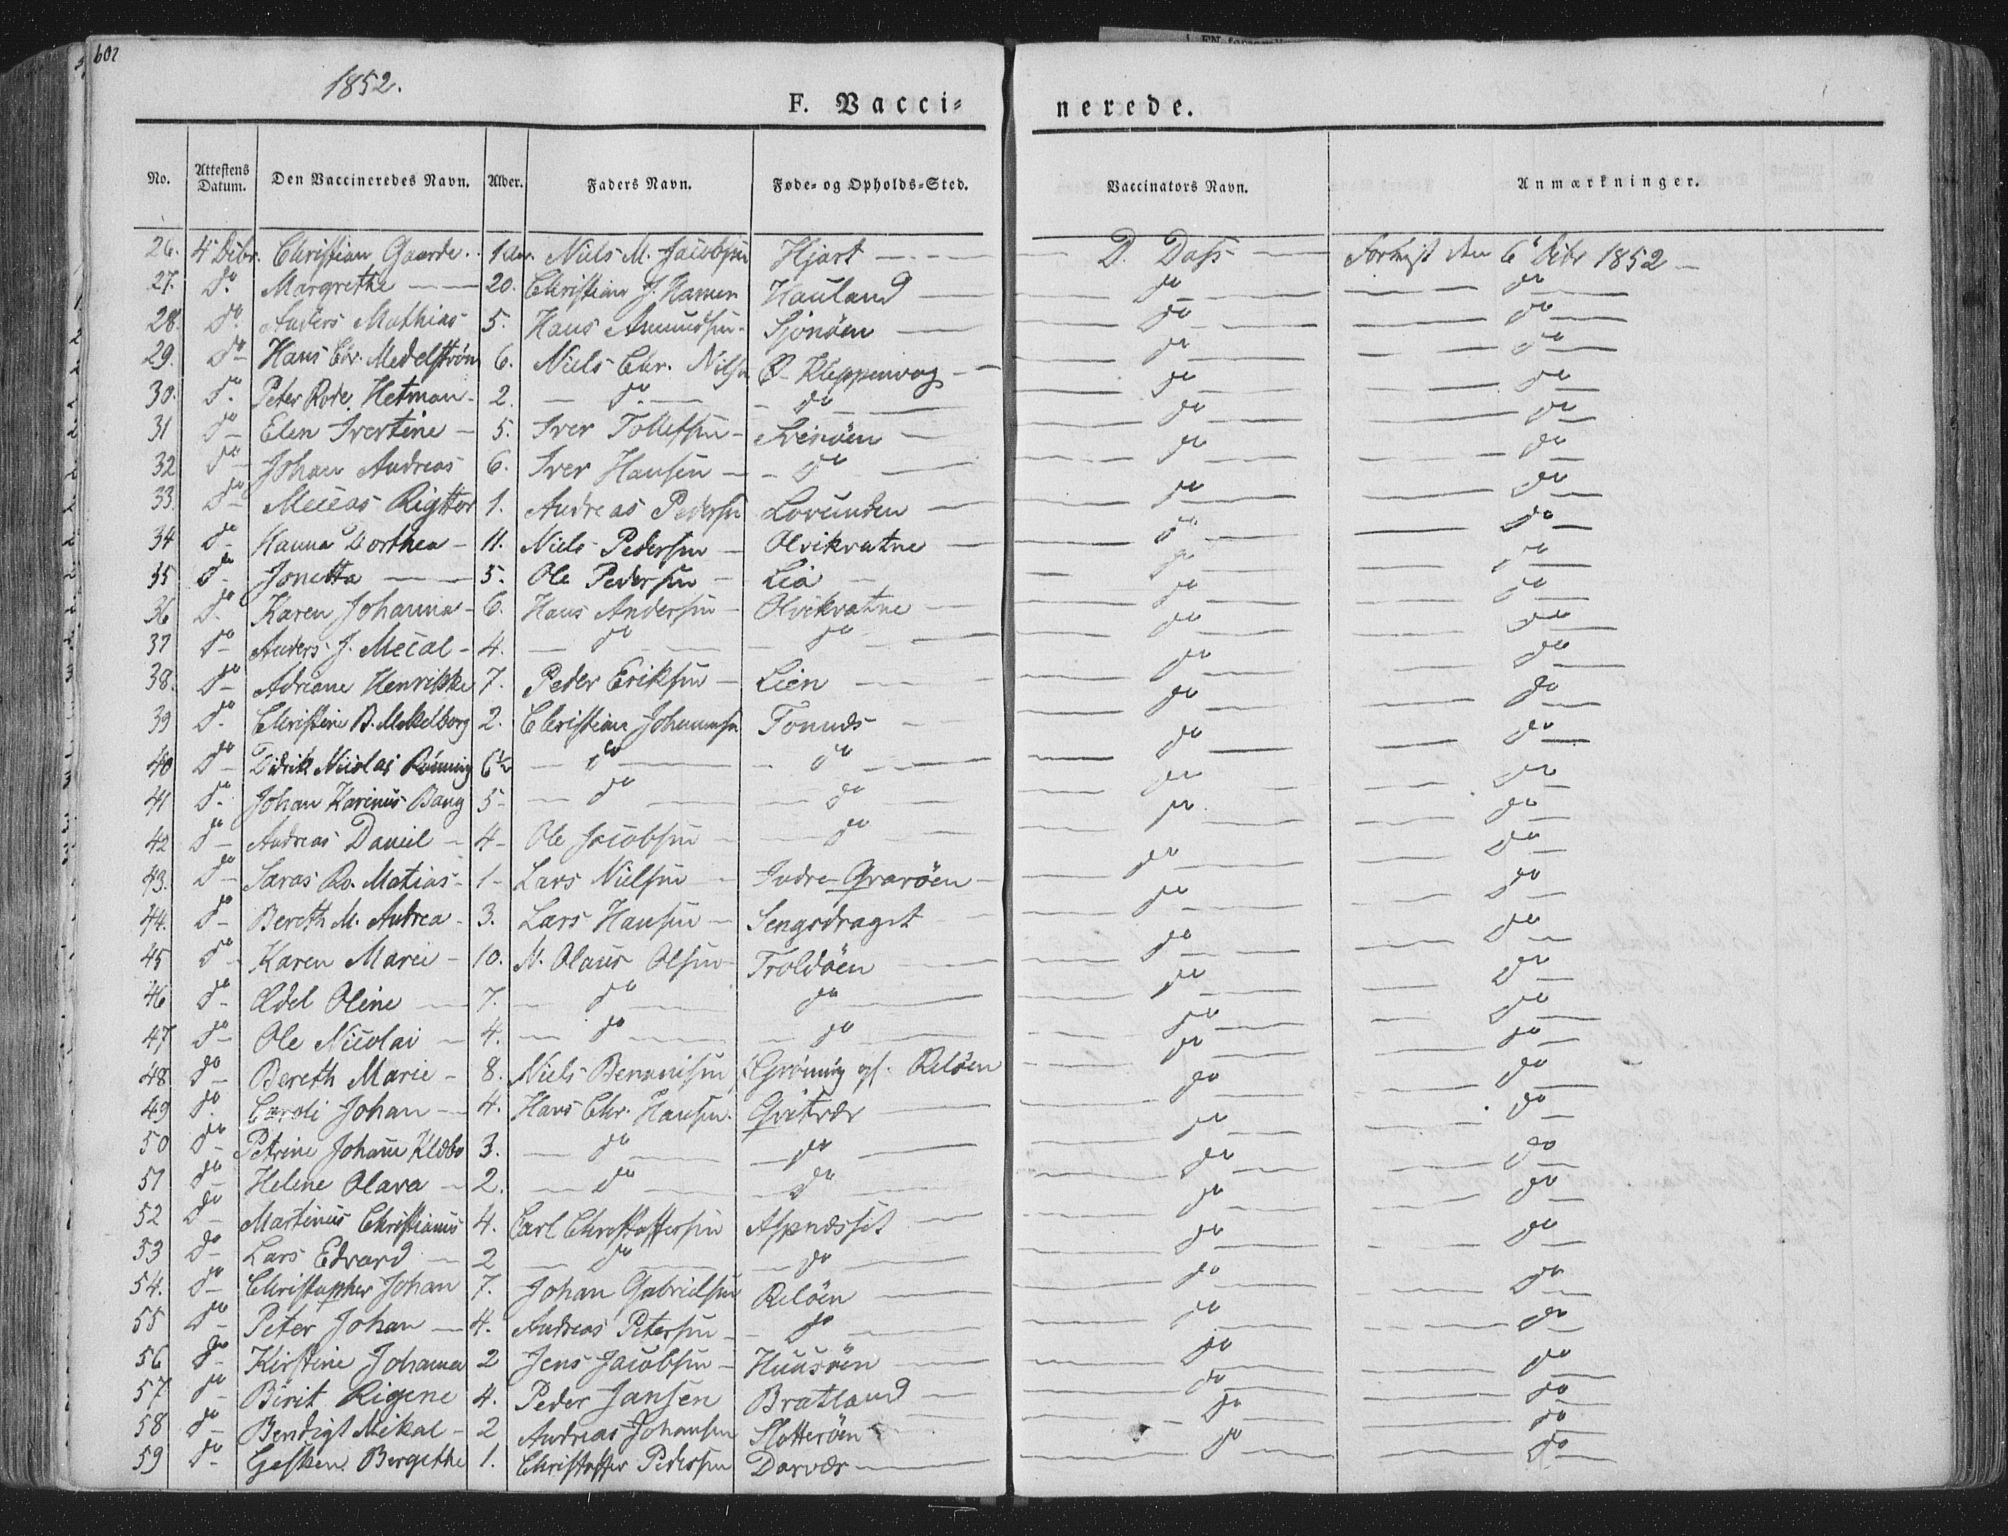 602
1852.
F. Vacci=nerede.
No. Attestens Datum. Den Vaccineredes Navn. Alder. Faders Navn. Føde- og Opholds-Sted. Vaccinators Navn. Anmærkninger.
26. 4 Debr. Christian Gaarde. 1 Niels M. Jacobsen Hjart D. Dass den 6 Debr 1852
27. do Margrethe 20. Christian J. Hauland do do
28. do Anders Mathias 5. Hans Amundsen Sjonøen do do
29. do Hans Chr. Medelstrøm 6. Niels Chr. Nilsn Ø. Kleppenvag do do
30. do Peter Rode Hetman 2. do do do do
31 do Elen Ivertine 5. Iver Tollefsen Svenøen do do
32 do Johan Andreas 6. Iver Hansen do do do
33. do Meceas Rigttor 1. Andreas Pedersen Lovunden do do
34 do Hanna Dorthea 11. Niels Pedersen Olvikvatne do do
35 do Jonetta 5. Ole Pedersen Lia do do
36 do Karen Johanna 6. Hans Andersen Olvikvatne do do
37 do Anders J. Mecal 4. do do do do
38. do Adriane Henrikke 7. Peder Eriksen Lien do do
39 do Christine B. Mekelborg 2. Christian Johannsn Tonnæs do do
40 do Didrik Nicolai Rönning 6½ do do do do
41 do Johan Karinus Bang 5 do do do do
42 do Andreas Daniel 4 Ole Jacobsen do do do
43. do Saras Ro. Matias 1 Lars Nielsen Indre Qvarøen do do
44. do Bereth M. Andrea 3. Lars Hansen Sengsdraget do do
45 do Karen Marie 10. N. Olaus Olsen Troldøen do do
46 do Edel Oline 7. do do do do
47 do Ole Nicolai 4. do do do do
48 do Bereth Marie 8. Niels Bennonisen Grønning Reløen do do
49 do Caroli Johan 4. Hans Chr. Hansen Qvitvær do do
50 do Petrine Johane Klæbo 3. do do do do
51 do Helene Olava 2. do do do do
52 do Martinus Christianus 4. Carl Christoffersen Aspnæssit do do
53 do Lars Edvard 2 do do do do
54. do Christopher Johan 7. Johan Gabrielsen Reløen do do
55 do Peter Johan 4. Andreas Petersen do do do
56 do Kirstine Johanna 2 Jens Jacobsen Huusøen do do
57 do Birit Rigene 4. Peder Jansen Bratland do do
58 do Bendigt Mikal 2 Andreas Johansen Slotterøen do do
59 do Gesken Bergithe 1. Christoffer Pedersen Dorvær do do